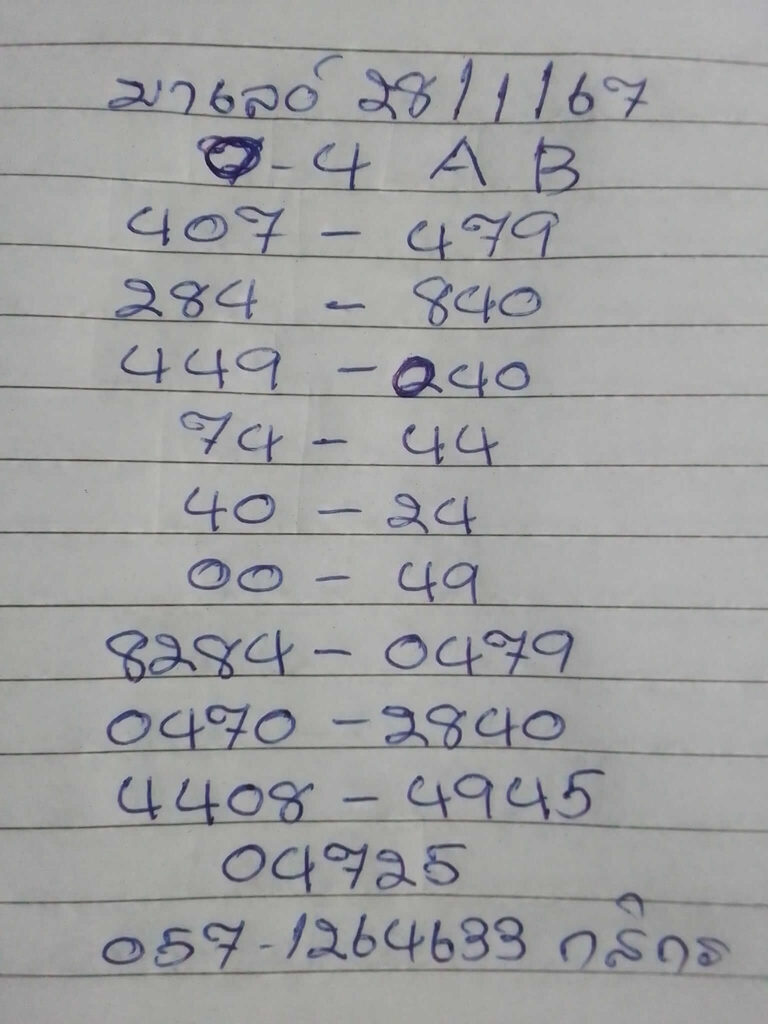 มาเลย์ 28/1/67
0-4 A B
407 - 479
284 - 840
449 - 240
74 - 44
40 - 24
00 - 49
8284 - 0479
0470 - 2840
4408 - 4945
04725
057-1264633 กสิกร